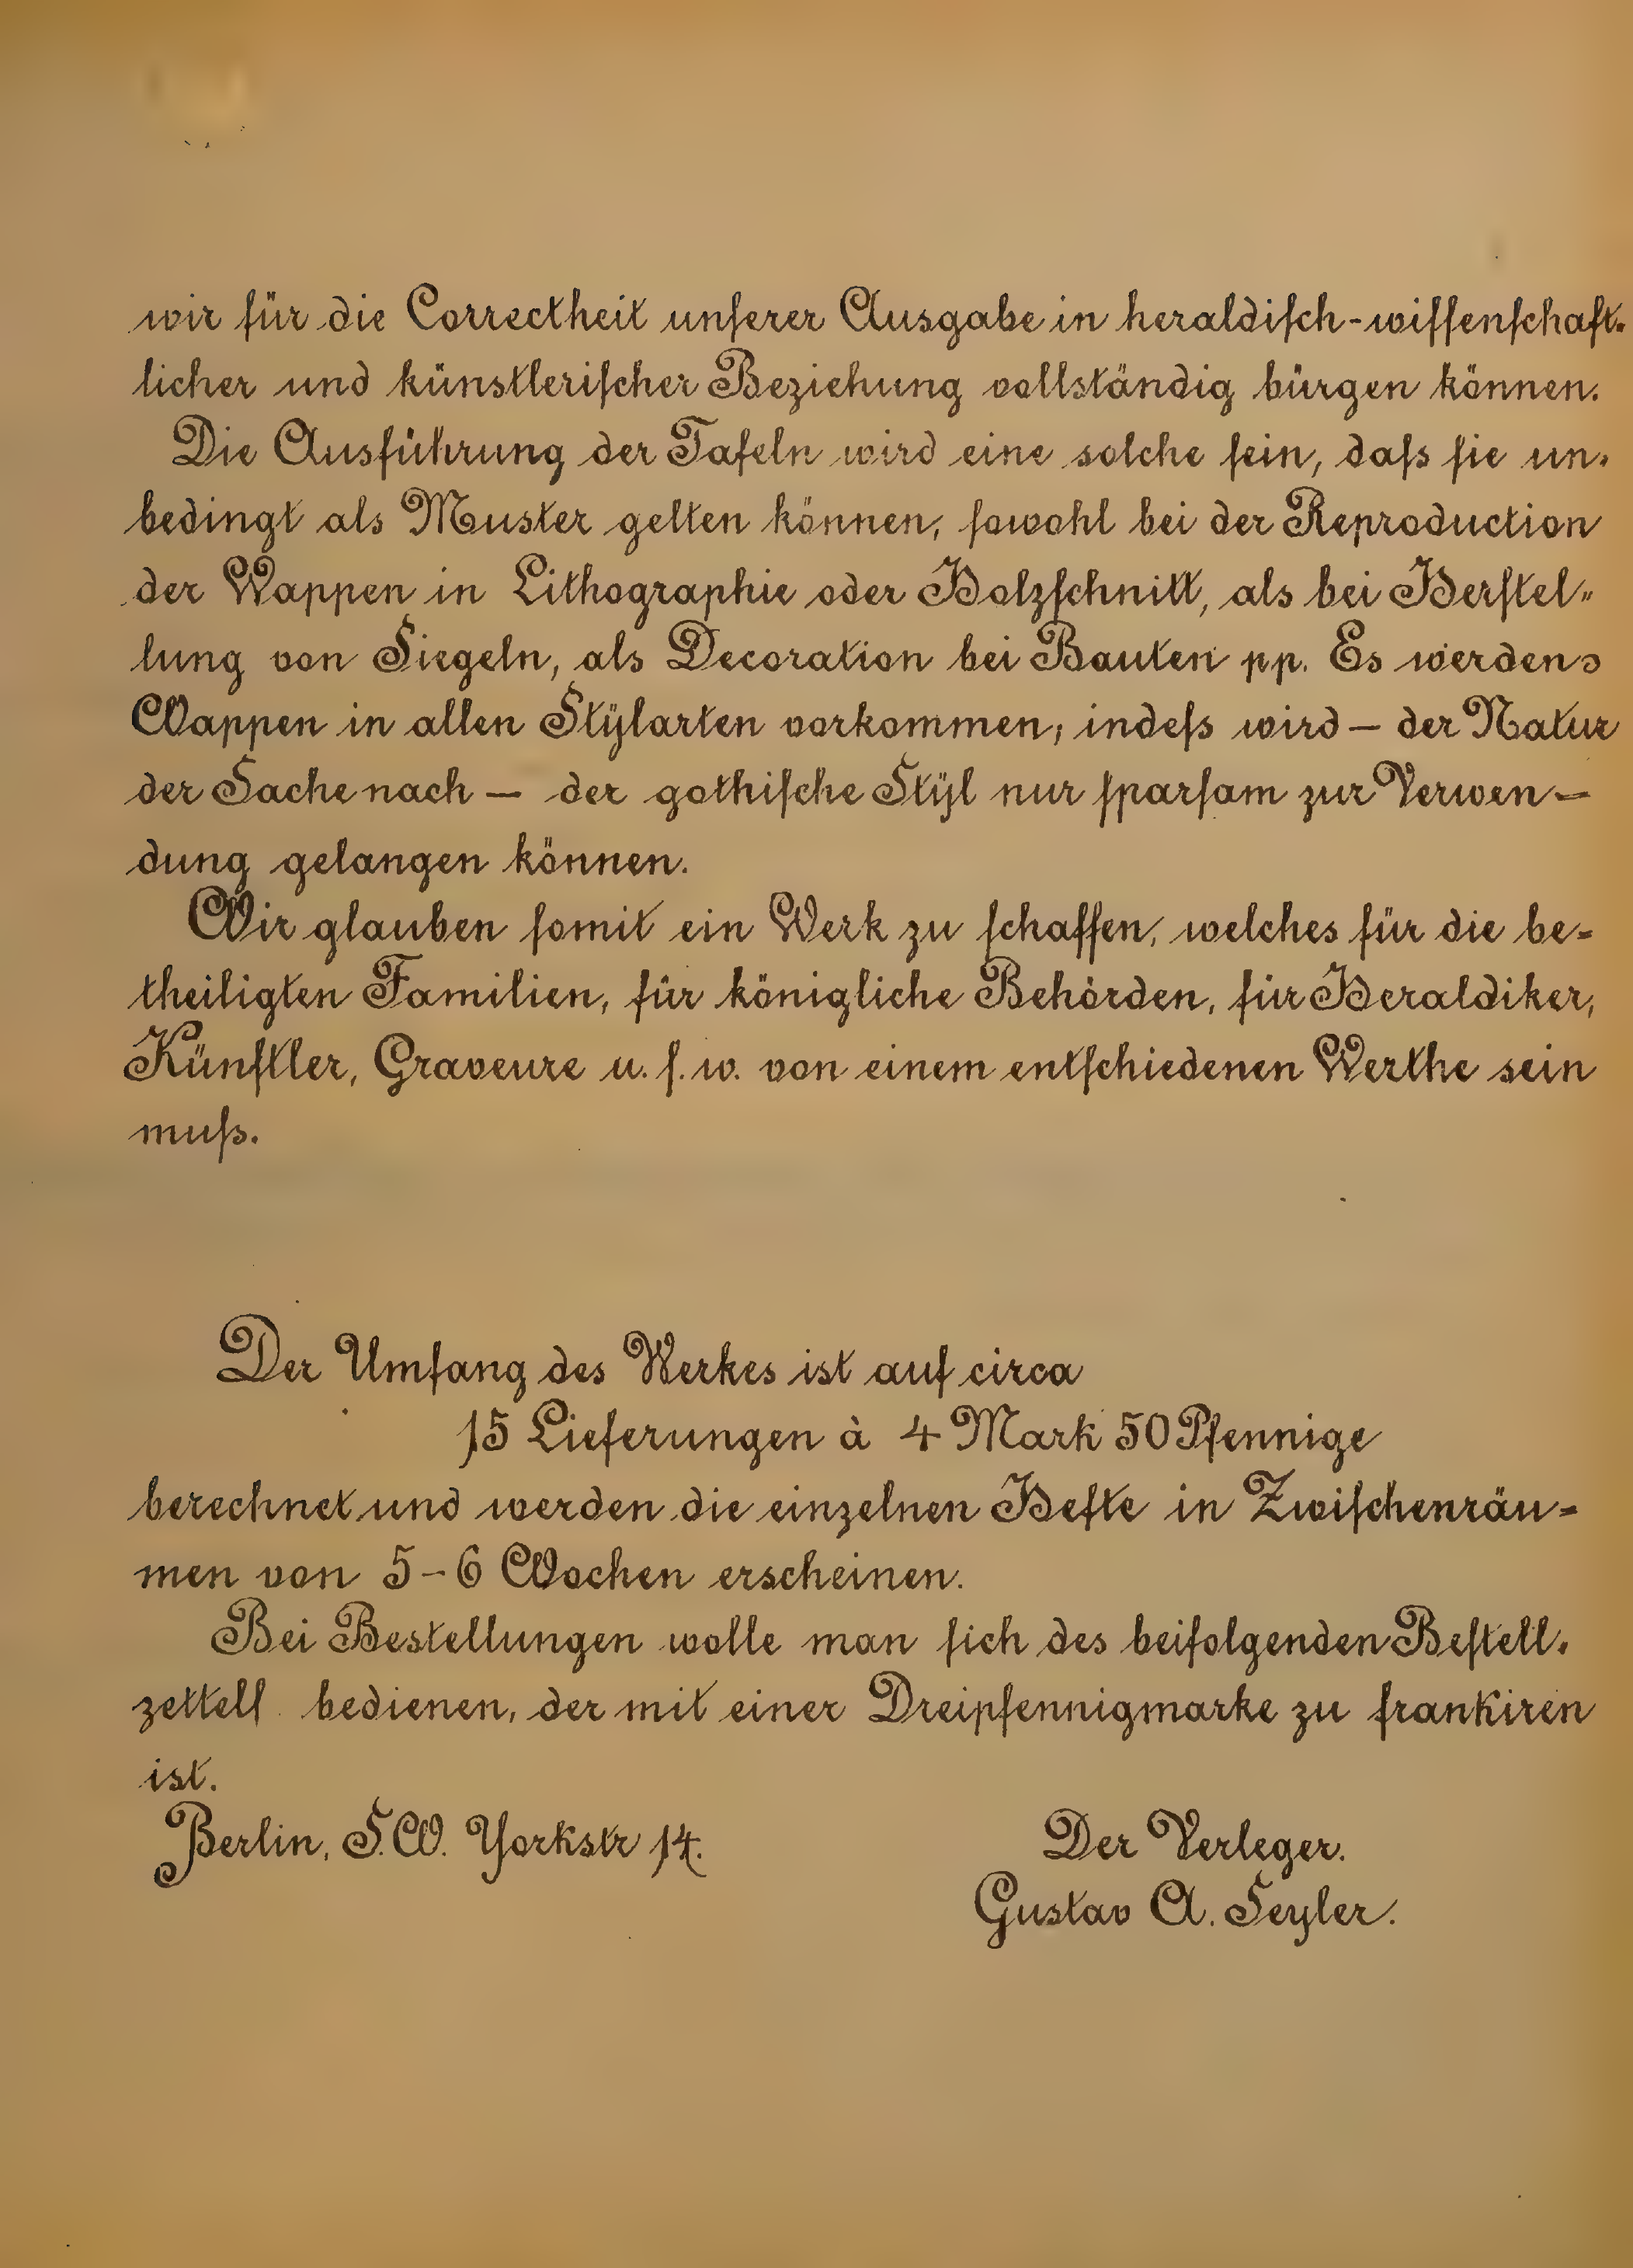 wir für die Correctheit unſerer Ausgabe in heraldiſch-wiſſenſchaft-
licher und künstleriſcher Beziehung vollständig bürgen können.
Die Ausführung der Tafeln wird eine solche ſein, daſs ſie un-
bedingt als Muster gelten können, ſowohl bei der Reproduction
der Wappen in Lithographie oder Holzſchnitt, als bei Herſtel-
lung von Siegeln, als Decoration bei Bauten pp. Es werden
Wappen in allen Stÿlarten vorkommen; indeſs wird – der Natur
der Sache nach – der gothiſche Stÿl nur ſparſam zur Verwen-
dung gelangen können.
Wir glauben ſomit ein Werk zu ſchaffen, welches für die be-
theiligten Familien, für königliche Behörden, für Heraldiker,
Künſtler, Graveure u. ſ. w. von einem entſchiedenen Werthe sein
muſs.
Der Umfang des Werkes ist auf circa
15 Lieferungen à 4 Mark 50 Pfennige
berechnet und werden die einzelnen Hefte in Zwiſchenräu-
men von 5–6 Wochen erscheinen.
Bei Bestellungen wolle man ſich des beifolgenden Beſtell-
zettelſ bedienen, der mit einer Dreipfennigmarke zu frankiren
ist.
Berlin, S.W. Yorkstr 14.
Der Verleger.
Gustav A. Seyler.